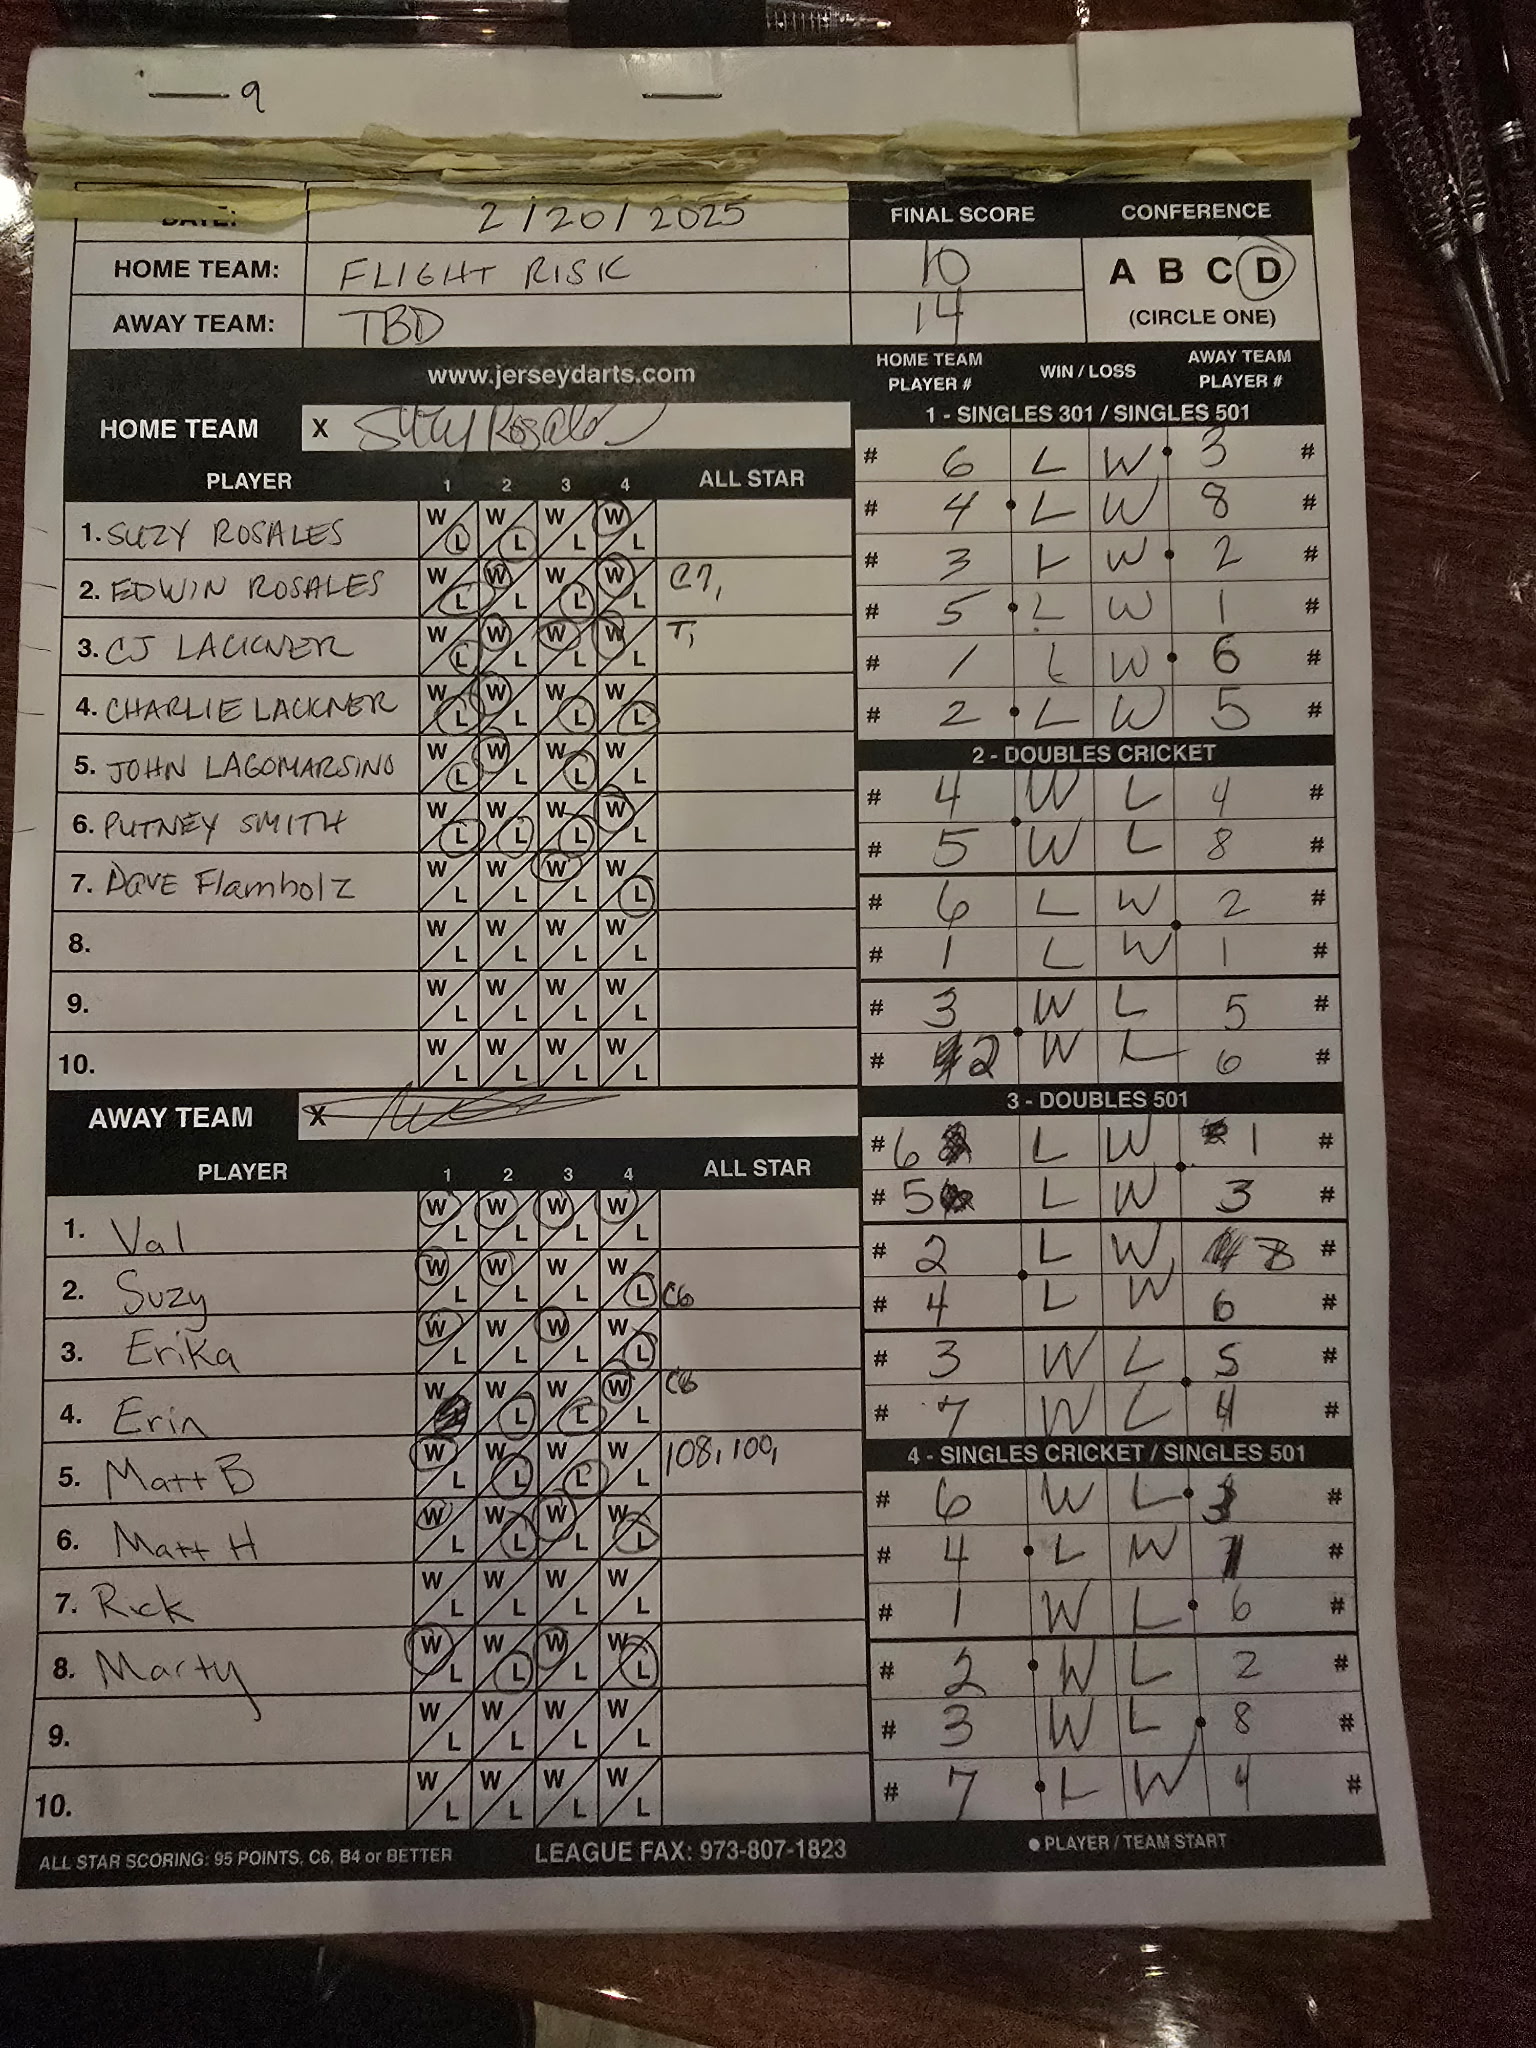 9
DATE: 2/20/2025 FINAL SCORE CONFERENCE
HOME TEAM: FLIGHT RISK 10 A B C D
AWAY TEAM: TBD 14 (CIRCLE ONE)
www.jerseydarts.com
HOME TEAM X Suzy Rosales
PLAYER 1 2 3 4 ALL STAR
1. SUZY ROSALES W L W L W L W L
2. EDWIN ROSALES W L W L W L W L C7,
3. CJ LACKNER W L W L W L W L T,
4. CHARLIE LACKNER W L W L W L W L
5. JOHN LAGOMARSINO W L W L W L W L
6. PUTNEY SMITH W L W L W L W L
7. Dave Flambolz W L W L W L W L
8. W L W L W L W L
9. W L W L W L W L
10. W L W L W L W L
AWAY TEAM X
PLAYER 1 2 3 4 ALL STAR
1. Val W L W L W L W L
2. Suzy W L W L W L W L C6
3. Erika W L W L W L W L
4. Erin W W L W L W L C6
5. Matt B W L W L W L W L 108, 100,
6. Matt H W L W L W L W L
7. Rick W L W L W L W L
8. Marty W L W L W L W L
9. W L W L W L W L
10. W L W L W L W L
HOME TEAM PLAYER # WIN / LOSS AWAY TEAM PLAYER #
1 - SINGLES 301 / SINGLES 501
# 6 L W 3 #
# 4 L W 8 #
# 3 L W 2 #
# 5 L W 1 #
# 1 L W 6 #
# 2 L W 5 #
2 - DOUBLES CRICKET
# 4 W L 4 #
# 5 W L 8 #
# 6 L W 2 #
# 1 L W 1 #
# 3 W L 5 #
# 2 W L 6 #
3 - DOUBLES 501
# 6 L W 1 #
# 5 L W 3 #
# 2 L W 8 #
# 4 L W 6 #
# 3 W L 5 #
# 7 W L 4 #
4 - SINGLES CRICKET / SINGLES 501
# 6 W L 3 #
# 4 L W 1 #
# 1 W L 6 #
# 2 W L 2 #
# 3 W L 8 #
# 7 L W 4 #
ALL STAR SCORING: 95 POINTS, C6, B4 or BETTER LEAGUE FAX: 973-807-1823 ● PLAYER / TEAM START